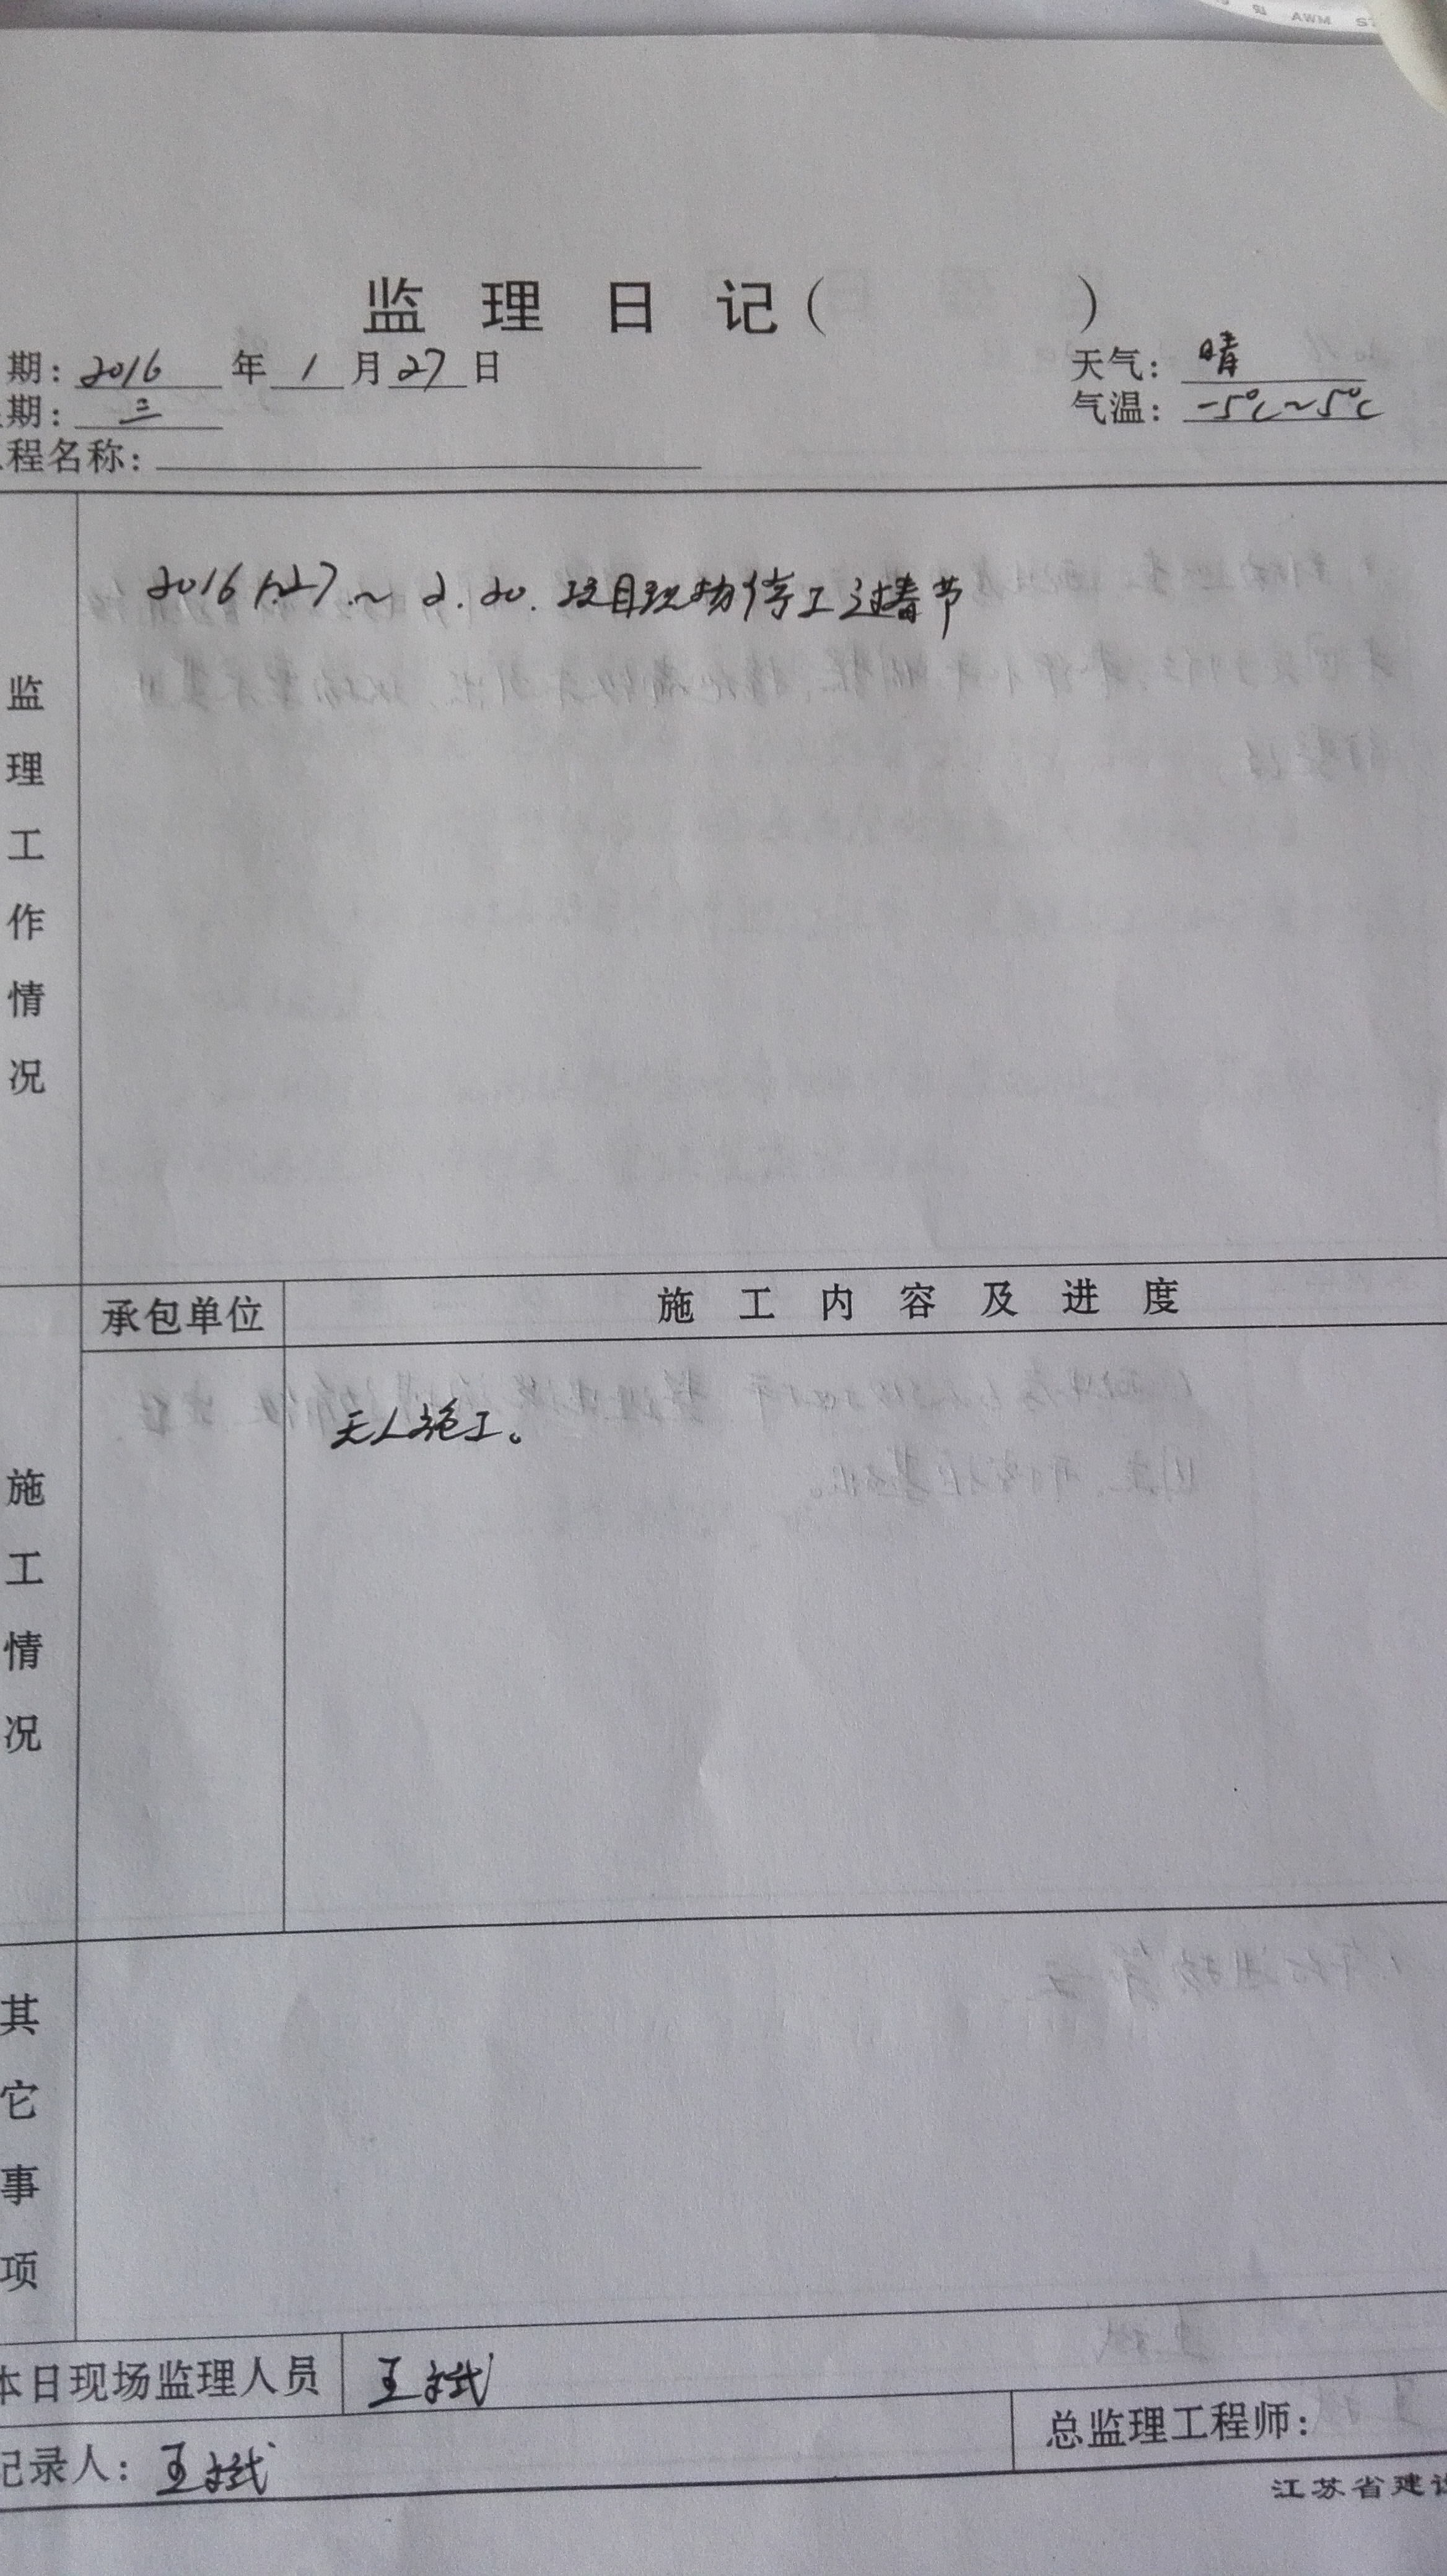 AWM
监理日记( )
期: 2016 年 1 月 27 日 天气: 晴
期: 三 气温: -5℃~5℃
程名称:
2016 1.27.~ 2.20. 项目现场停工过春节
监理工作情况
承包单位 施工内容及进度
无人施工。
施工情况
其它事项
本日现场监理人员 王斌
记录人: 王斌 总监理工程师:
江苏省建设